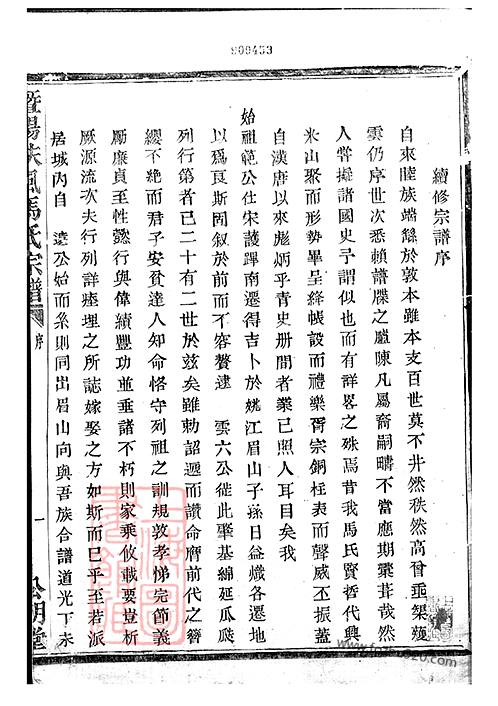 909453
續修宗譜序
自來睦族端繇於敦本雖本支百世莫不井然秩然高曾垂榘矱
雲仍序世次悉賴譜牒之臚陳凡屬裔嗣疇不當應期彙葺哉然
人嘗擬諸國史予謂似也而有詳畧之殊焉昔我馬氏賢哲代興
米山聚而形勢畢呈絳帳設而禮樂胥宗銅柱表而聲威丕振蓋
自漢唐以來彪炳乎青史册間者業已照人耳目矣我
始祖範公仕宋護蹕南遷得吉卜於姚江眉山子孫日益熾各遷地
以爲良斯固叙於前而不容贅逮 雲六公徙此肇基綿延瓜瓞
列行第者已二十有二世於玆矣雖勅詔遞而讚命膺前代之簪
纓不絶而君子安貧達人知命恪守列祖之訓規敦孝悌完節義
勵廉貞至性懿行與偉績豐功並垂諸不朽則家乘攸載要豈析
厥源流次夫行列詳瘞埋之所誌嫁娶之方如斯而已乎至若派
居城內自 遠公始而系則同出眉山向與吾族合譜道光丁未
暨陽扶風馬氏宗譜
序
一